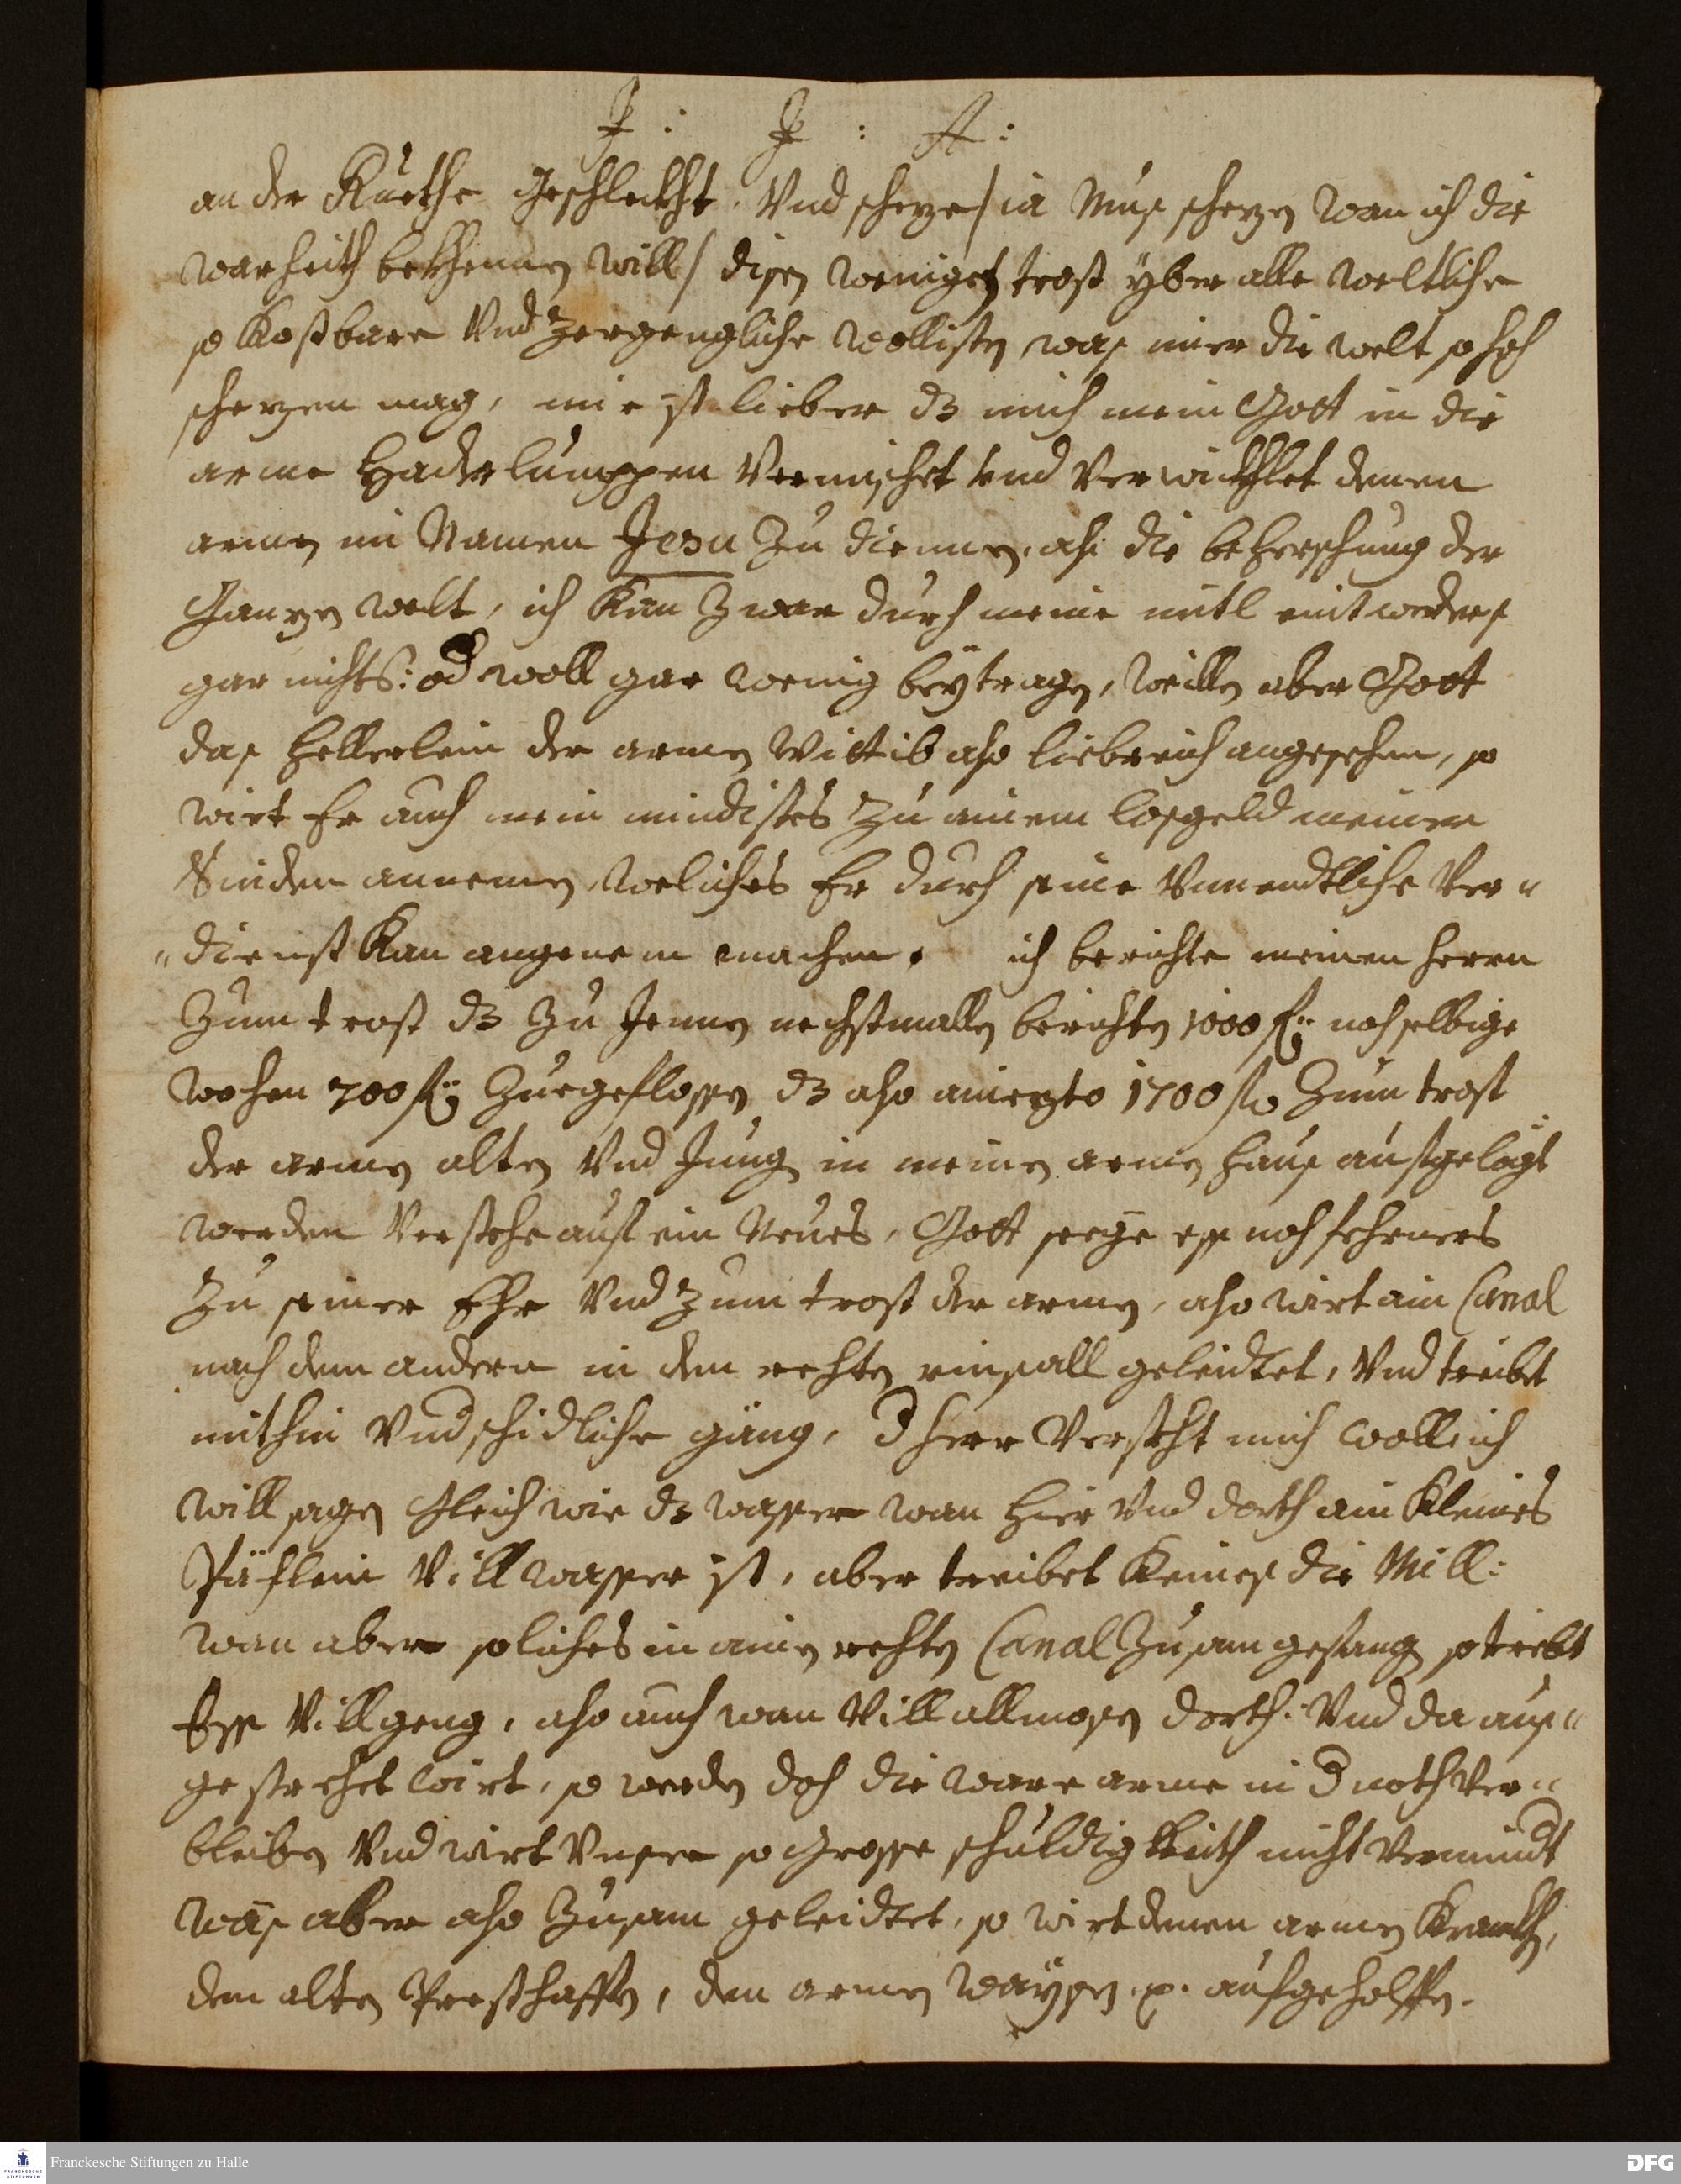 J : J : A :
an der Ruethe geschleckht. Vnd scheze / ia Mus schezen wan ich die
warheith bekhennen will / disen wenigen trost yber alle weltliche
so kostbare Vnd zergengliche wollisten, was imer die welt so hoch
schezen mag, mir ist lieber dz mich mein Gott in die
arme Haderlumppen Vermischet vnd Verwickhlet denen
armen im Namen Jesu zu diennen, als die beherschung der
Ganzen welt, ich kan zwar durch meine mitl entweders
gar nichts: od woll gar wenig beytragen, weillen aber Gott
das Hellerlein der armen Wittib also liebreich angesehen, so
wirt Er auch mein mindistes zu ainem losgeld meiner
Sinden annemen, weliches Er durch seine Vnnendtliche Ver"
"dienst kan angenem machen. ich berichte meinen herrn
zum trost dz zu Jennen nechstmallen berichten 1000 f: noch selbige
wochen 700 f: zuegeflossen dz also aniezto 1700 f: zum trost
der armen alten Vnd Jung in meinen armen haus ausgelägt
werden Verstehe auf ein Neues, Gott seege ess noch fehrners
zu seiner Ehr Vnd zum trost der armen, also wirt ain Canal
nach dem andern in den rechten einfall geleidtet, Vnd treibet
mithin Vndschidliche gäng, d herr Versteht mich woll ich
will sagen Gleich wie dz wasser wan hier Vnd dorth ain kleines
Pächlein Vill wasser ist, aber treibet keines die Mill:
wan aber soliches in ainen rechten Canal zusam gefang so treibt
Ess Vill geng, also auch wan Vill allmosen dorth: Vnd da aus"
gestrehet wirt, so werden doch die ware arme in d noth Ver"
bleiben Vnd wirt Vnsere so grosse schuldigkeith nicht Vermindt
was aber also zusam geleidtet, so wirt denen armen kranckhen,
den alten Presthafften, den armen Waysen p. aufgeholffen.
Franckesche Stiftungen zu Halle
FRANCKESCHE STIFTUNGEN
DFG